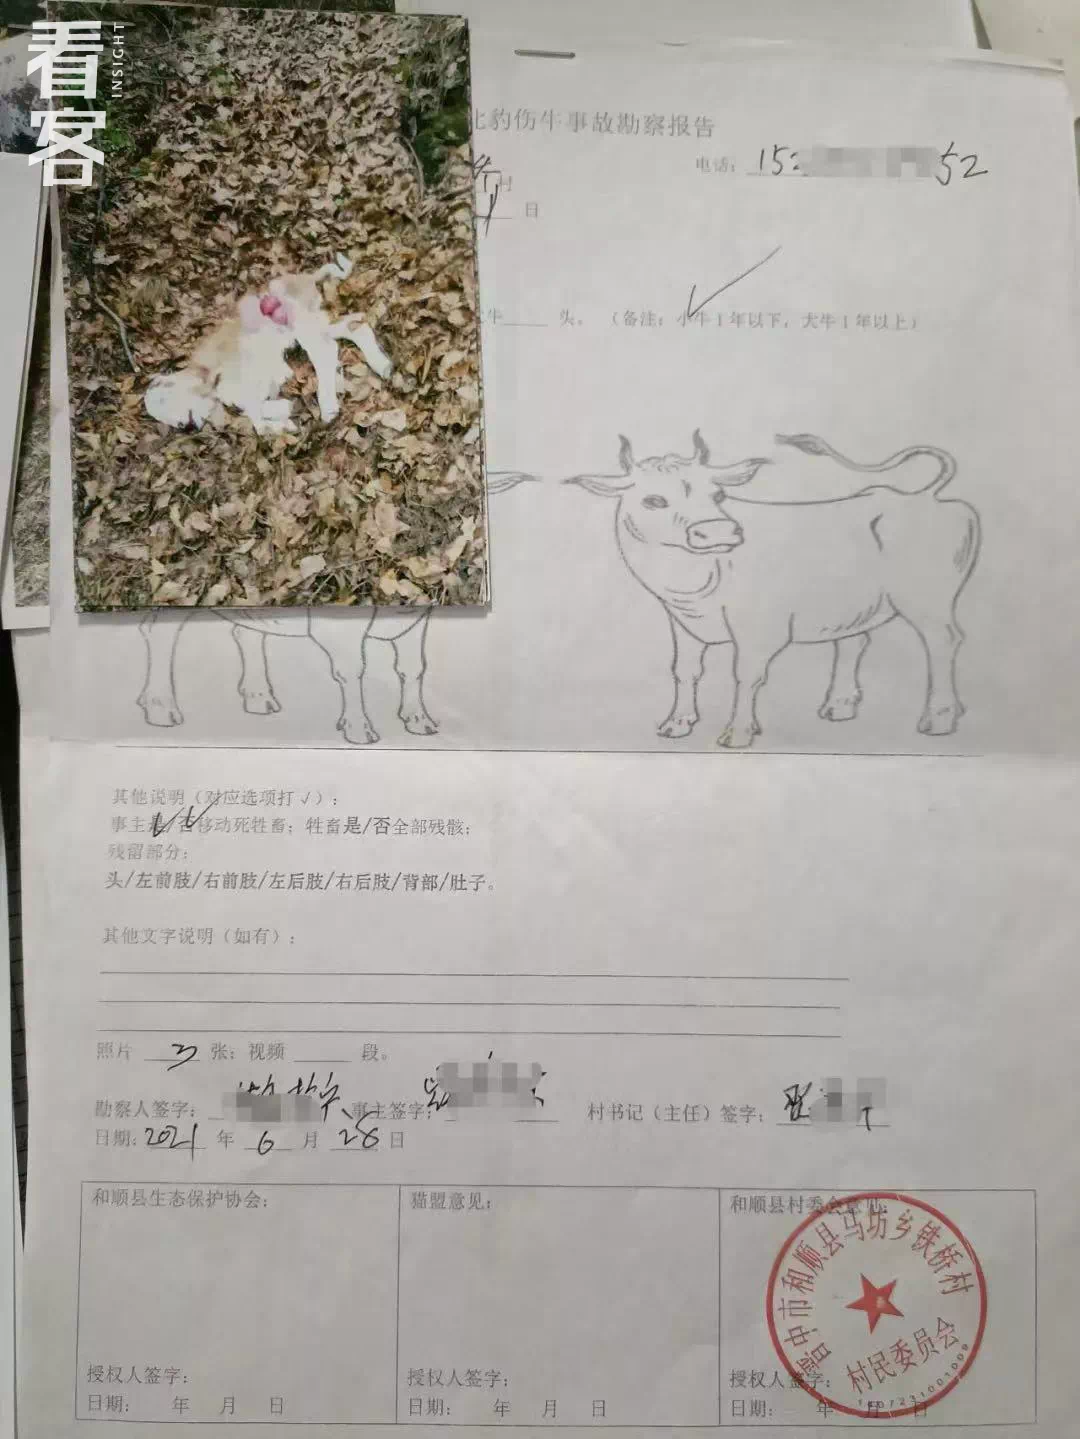 看客
INSIGHT
北豹伤牛事故勘察报告
电话：152 52
村
日
牛 头。（备注：小牛1年以下，大牛1年以上）
其他说明（对应选项打√）：
事主是/否移动死牲畜；牲畜是/否全部残骸；
残留部分：
头/左前肢/右前肢/左后肢/右后肢/背部/肚子。
其他文字说明（如有）：
照片 3 张；视频 段。
勘察人签字： 事主签字： 村书记（主任）签字：
日期：2021 年 6 月 28 日
和顺县生态保护协会： 猫盟意见： 和顺县村委会意见：
晋中市和顺县马坊乡铁桥村
村民委员会
1407231001009
授权人签字： 授权人签字： 授权人签字：
日期： 年 月 日 日期： 年 月 日 日期： 年 月 日